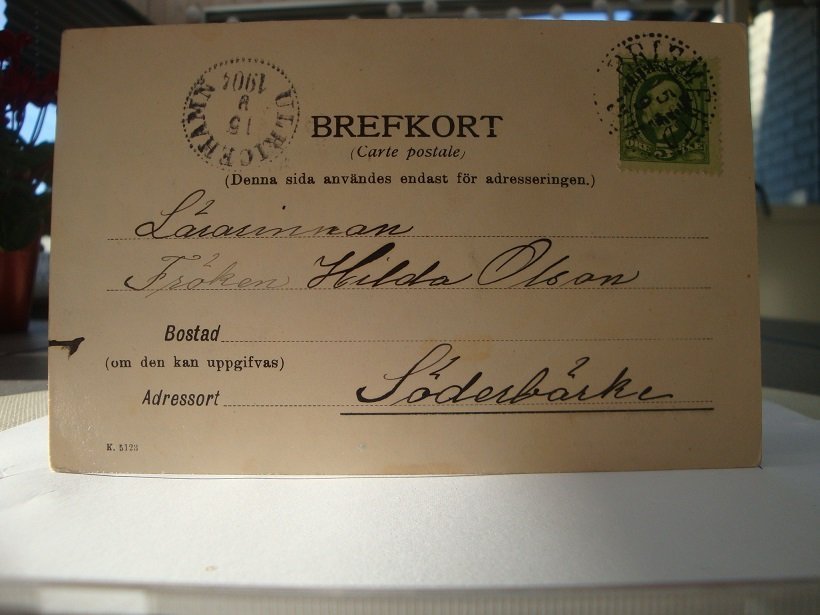 ULRICEHAMN
15
8
1904
BREFKORT
(Carte postale)
(Denna sida användes endast för adresseringen.)
Lärarinnan
Fröken Hilda Olson
Bostad
(om den kan uppgifvas)
Adressort Söderbärke
K. 5123
5
ÖRE